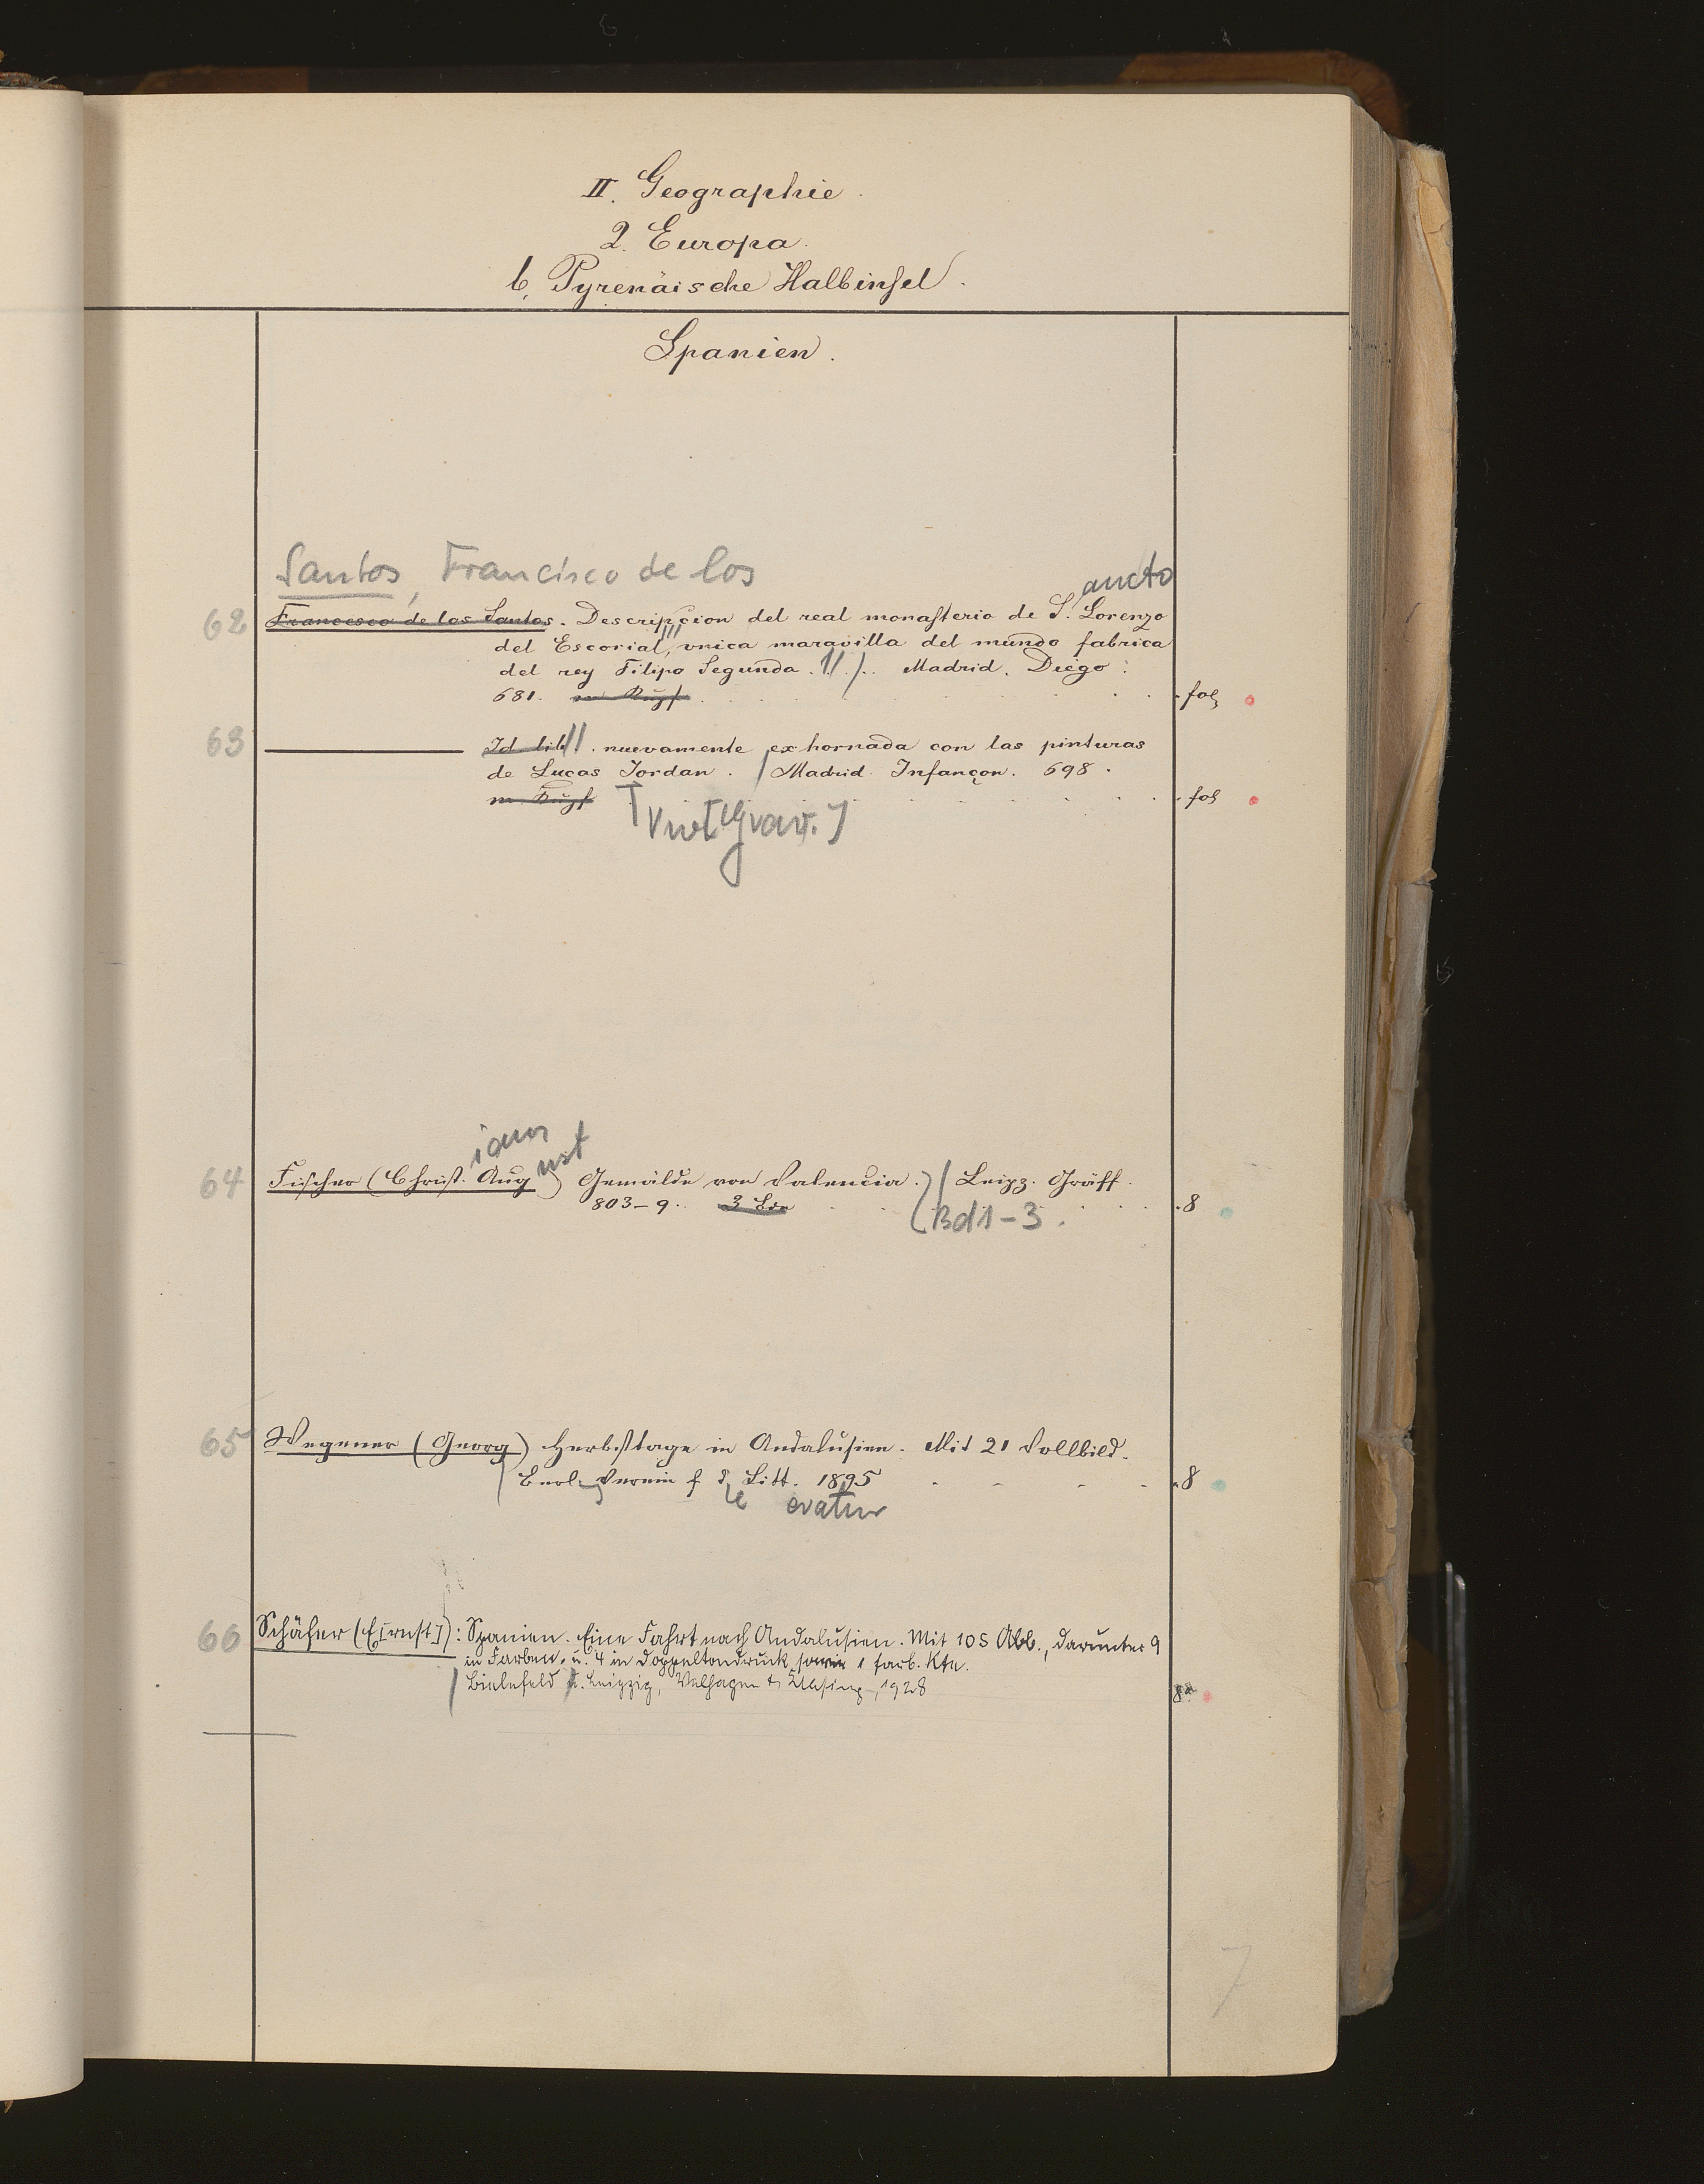 II. Geographie.
2. Europa.
b, Pyrenäische Halbinsel.
Spanien.
Santos, Francisco de los
ancto
62 Francesco de los Santos. Descripcion del real monasterio de S. Lorenzo
del Escorial, vnica maravilla del mundo fabrica
del rey Filipo Segunda. Madrid. Diego:
681. m Kupf. fol
63 Id lib. nuevamente exhornada con las pinturas
de Lucas Jordan. Madrid. Infançon. 698.
m Kupf fol
ians
ust
64 Fischer (Christ. Aug) Gemälde von Valencia. Leipz. Gräff.
803-9. 3 Bde 8
Bd 1-3.
65 Wegener (Georg) Herbsttage in Andalusien. Mit 21 Vollbild.
Berl. Verein f d Litt. 1895 8
eratur
66 Schäfer (E[rnst]): Spanien. Eine Fahrt nach Andalusien. Mit 105 Abb., darunter 9
in Farben, u. 4 in Doppeltondruck sowie 1 farb. Kte.
Bielefeld u. Leipzig, Velhagen & Klasing, 1928 8°
7